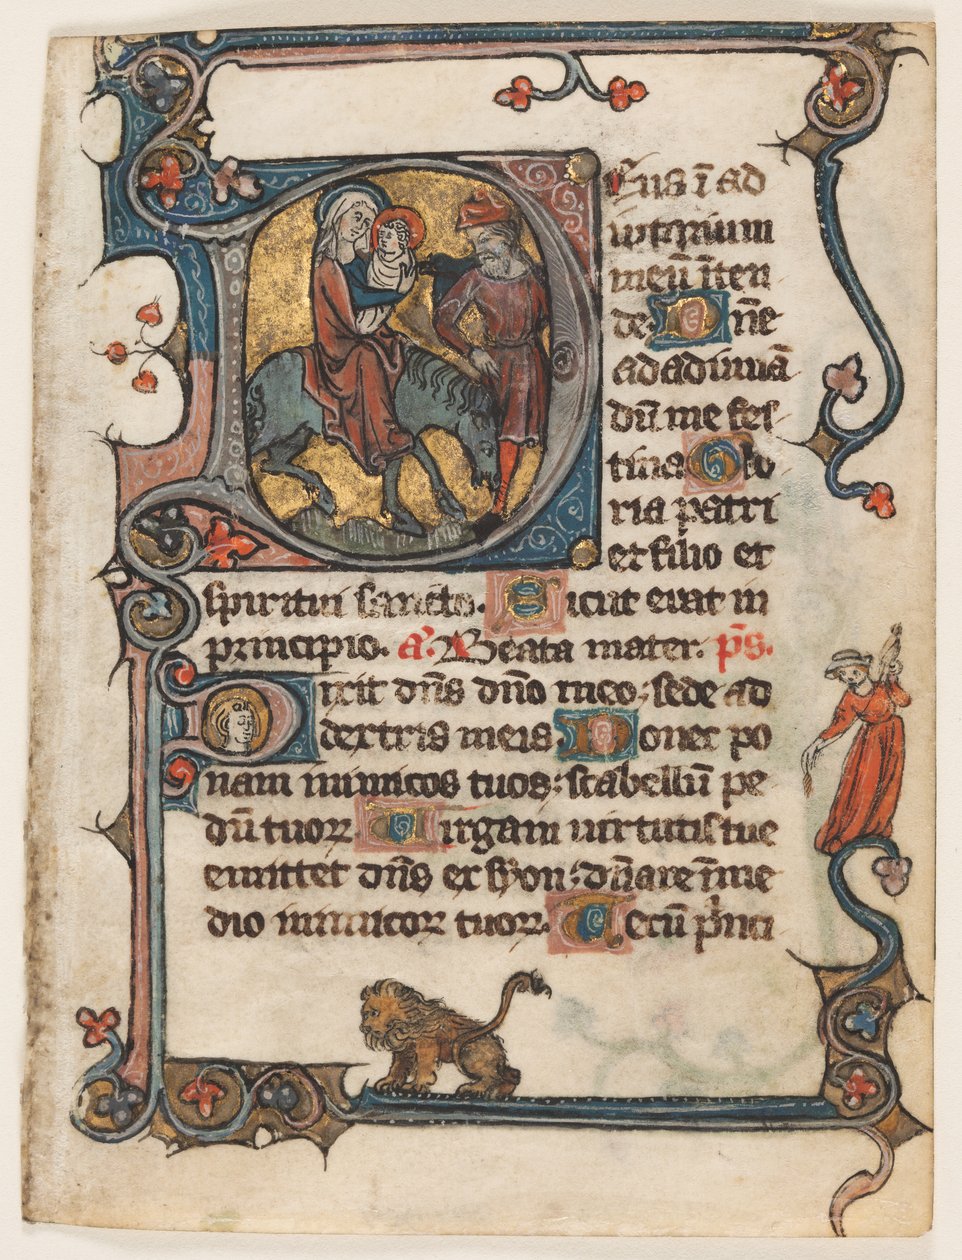 Deus ī ad
iutorium
meū īten
de. Dn̄e
ad adiuuā
dū me fes
tina Glo
ria patri
et filio et
spiritui sancto. Sicut erat in
principio. a. Beata mater. ps̄.
Dixit dn̄s dn̄o meo: sede ad
dextris meis. Donec po
nam inimicos tuos: scabellū pe
dū tuoꝝ. Virgam uirtutis tue
emittet dn̄s ex syon: dn̄are ī me
dio inimicoꝝ tuoꝝ. Tecū pͥnci